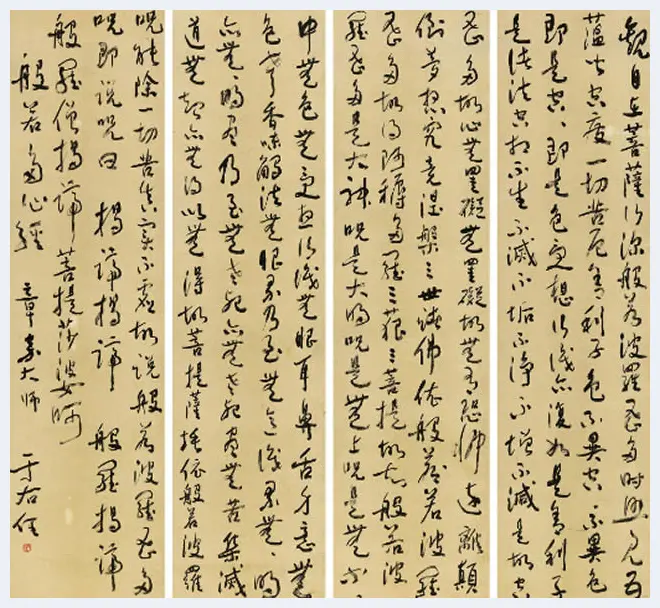 觀自在菩薩行深般若波羅蜜多時照見五
蘊皆空度一切苦厄舍利子色不異空、不異色
即是空、即是色受想行識亦復如是舍利子
是諸法空相不生不滅不垢不淨不增不減是故空
蜜多故心無罣礙無罣礙故無有恐怖遠離顛
倒夢想究竟涅槃三世諸佛依般若波羅
蜜多故得阿耨多羅三藐三菩提故知般若波
羅蜜多是大神咒是大明咒是無上咒是無等
中無色無受想行識無眼耳鼻舌身意無
色聲香味觸法無眼界乃至無意識界無、明
亦無、明盡乃至無老死亦無老死盡無苦集滅
道無智亦無得以無得故菩提薩埵依般若波羅
咒能除一切苦真實不虛故說般若波羅蜜多
咒即說咒曰 揭諦揭諦 般羅揭諦
般羅僧揭諦 菩提莎婆訶
般若多心經 章嘉大師 于右任